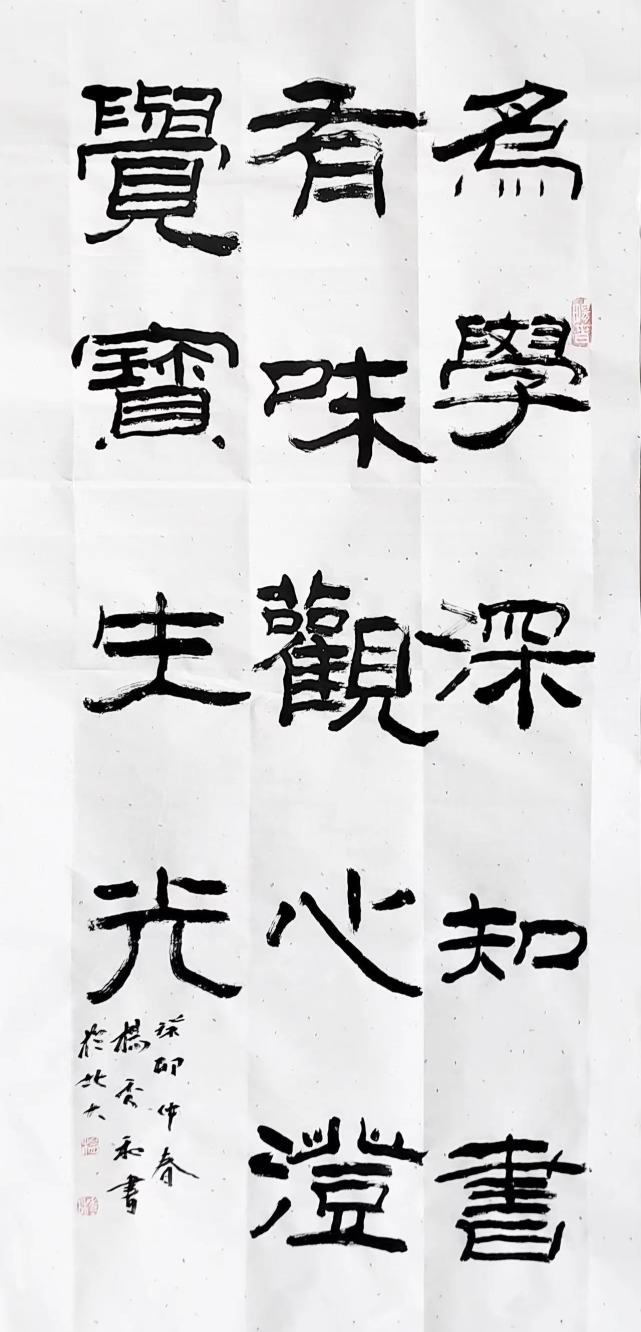 為學深知書
有味觀心澄
覺寶生光
癸卯仲春
楊秀和書
於北大